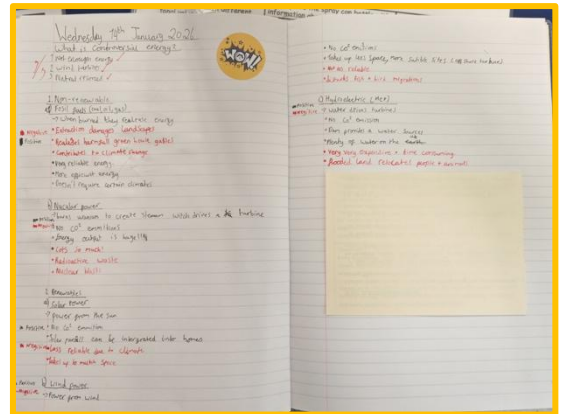 Wednesday 14th January 2026
What is controversial energy?
1 Not enough energy
2 Wind turbines
3 Political issues
WOW!
1 Non-renewable
a) Fossil fuels (coal, oil, gas)
→ when burned they release energy
Negative • Extraction damages landscapes
Positive • Releases harmful green house gasses
• Contributes to climate change
• Very reliable energy
• More efficient energy
• Doesn't require certain climates
b) Nuclear power
• burns uranium to create steam which drives a turbine
• No CO² emmitions
• Energy output is huge!!!
• Costs so much!
• Radioactive waste
• Nuclear
2 Renewables
a) Solar Power
→ power from the sun
Positive • No CO² emmition
• Solar panels can be intergrated into homes
negative • Less reliable due to climate
• Takes up to much space
Positive b) Wind power
negative → Power from wind
• No CO² emitions
• Takes up less space, more subtle sites & offshore turbines
• Not as reliable
• Disrupts fish + bird migrations
Positive c) Hydroelectric (HEP)
negative → water drives turbines
• No CO² emission
• Dam provides a water source
• Plenty of water on the earth
• Very very expensive + time consuming
• flooded land relocates people + animals